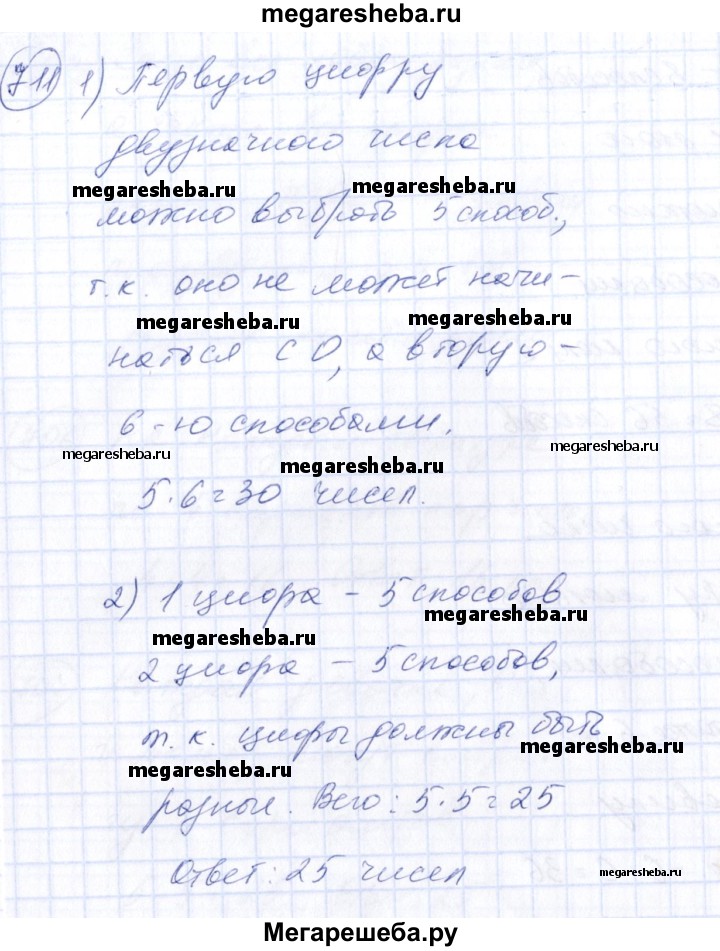 megaresheba.ru
711 1) Первую цифру
двузначного числа
megaresheba.ru megaresheba.ru
можно выбрать 5 способ.,
т.к. оно не может начи-
megaresheba.ru megaresheba.ru
наться с 0, а вторую -
6-ю способами.
megaresheba.ru megaresheba.ru megaresheba.ru
5·6=30 чисел.
2) 1 цифра - 5 способов
megaresheba.ru megaresheba.ru
2 цифра - 5 способов,
т.к. цифры должны быть
megaresheba.ru megaresheba.ru
разные. Всего: 5·5=25
Ответ: 25 чисел
megaresheba.ru
Мегарешеба.ру